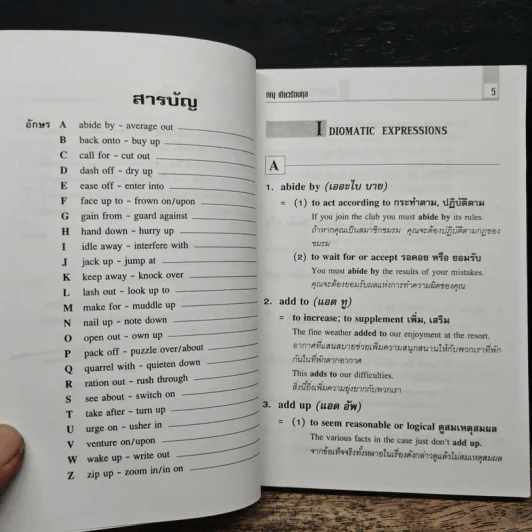 สารบัญ
อักษร A abide by – average out
B back onto – buy up
C call for – cut out
D dash off – dry up
E ease off – enter into
F face up to – frown on/upon
G gain from – guard against
H hand down – hurry up
I idle away – interfere with
J jack up – jump at
K keep away – knock over
L lash out – look up to
M make for – muddle up
N nail up – note down
O open out – own up
P pack off – puzzle over/about
Q quarrel with – quieten down
R ration out – rush through
S see about – switch on
T take after – turn up
U urge on – usher in
V venture on/upon
W wake up – write out
Z zip up – zoom in/in on
5
IDIOMATIC EXPRESSIONS
A
1. abide by (เออะไบ บาย)
= (1) to act according to กระทำตาม, ปฏิบัติตาม
If you join the club you must abide by its rules.
ถ้าหากคุณเป็นสมาชิกชมรม คุณจะต้องปฏิบัติตามกฎของ
ชมรม
(2) to wait for or accept รอคอย หรือ ยอมรับ
You must abide by the results of your mistakes.
คุณจะต้องยอมรับผลแห่งการทำความผิดของคุณ
2. add to (แอด ทู)
= to increase; to supplement เพิ่ม, เสริม
The fine weather added to our enjoyment at the resort.
อากาศที่แสนสบายช่วยเพิ่มความสนุกสนานให้กับพวกเราที่พัก
กันในที่พักตากอากาศ
This adds to our difficulties.
สิ่งนี้ยิ่งเพิ่มความยุ่งยากกับพวกเรา
3. add up (แอด อัพ)
= (1) to seem reasonable or logical ดูสมเหตุสมผล
The various facts in the case just don't add up.
จากข้อเท็จจริงทั้งหลายในเรื่องดังกล่าวดูแล้วไม่สมเหตุสมผล